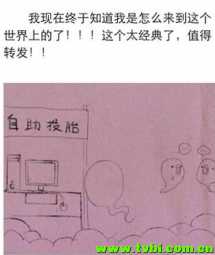 我现在终于知道我是怎么来到这个
世界上的了！！！这个太经典了，值得
转发！！
自助投胎
www.tvbi.com.cn